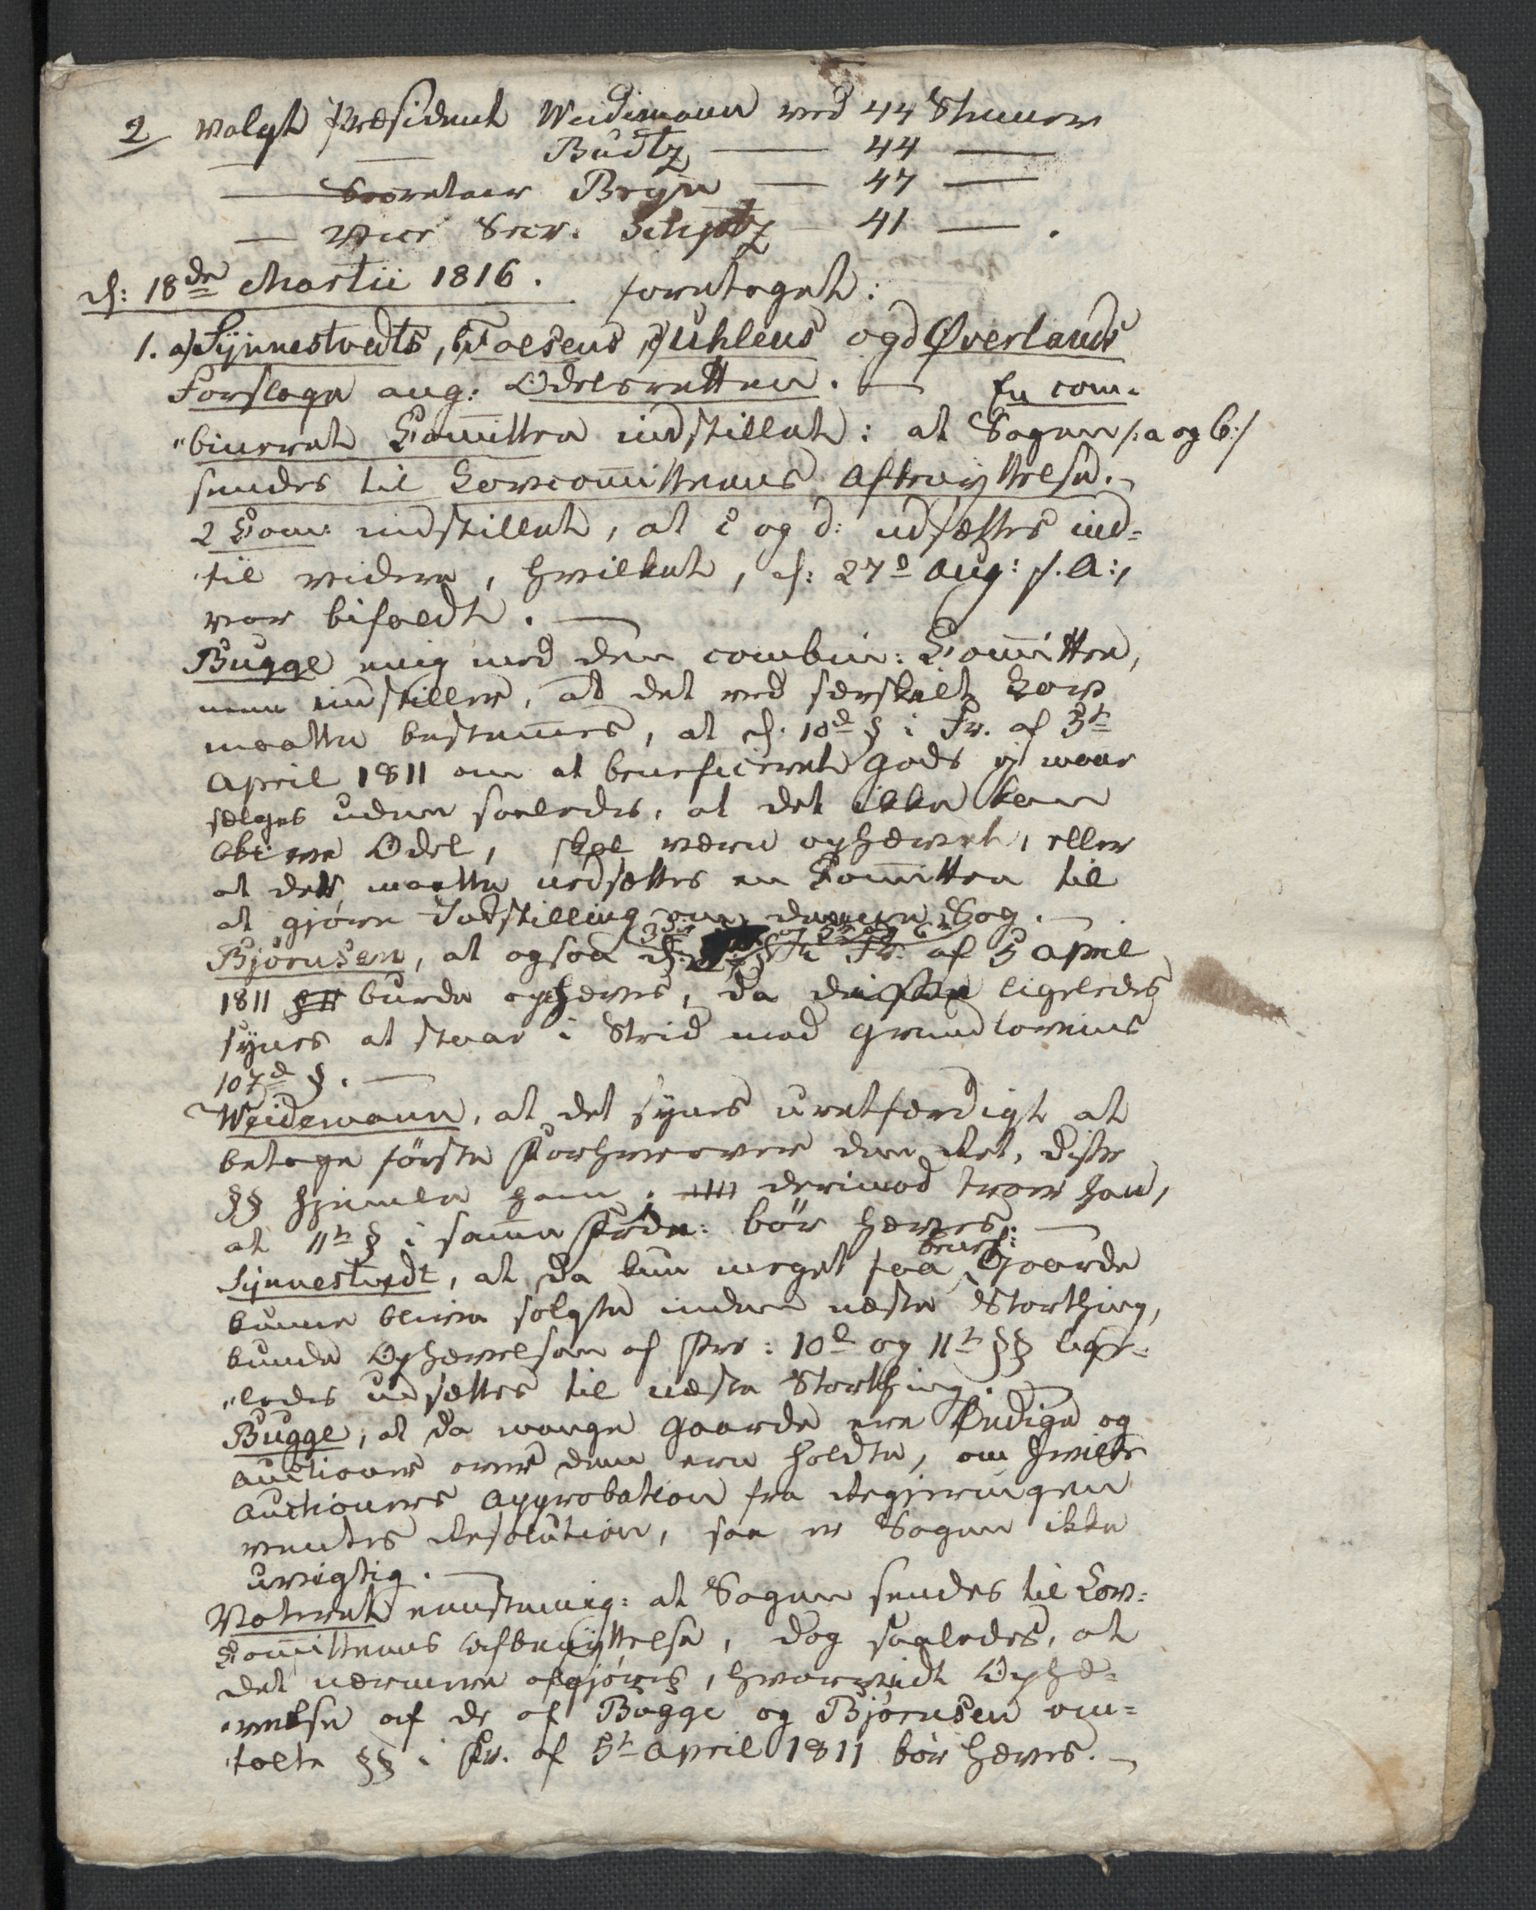 2 Valgt Præsident Weidemann ved 44 Stemmer
— — Budtz — 44 —
— Secretair Bryn — 47 —
— Vice Secr. Schjøtz — 41 — .
d: 18de Martii 1816. foretaget:
1. a) Synnestvedts, b) Falsens, c) Uhlens og d Øverlands
Forslage ang: Odelsretten. — En com-
"bineret Committee indstillet: at Sagen /: a og b :/
sendes til Lovcommitteens Afbenyttelse. —
2 Com: indstillet, at c og d: udsættes ind-
til videre, hvilket, d: 27d Aug: f. A:,
var bifaldt. —
Bugge enig med den combin: Committee,
men indstiller, at det ved særskilt Lov
maatte bestemmes, at d: 10d § i Fr. af 5t
April 1811 om at beneficeret Gods ej maae
sælges uden saaledes, at det ikke kan
blive Odel, skal være ophævet, eller
at det maatte nedsættes en Committee til
at gjøre Indstilling om denne Sag. —
Bjørnsen, at ogsaa d: 3die 5te og 6te § i Fr. af 5 April
1811 burde ophæves, da disse ligeledes
synes at staae i Strid mod Grundlovens
107d §. —
Weidemann, at det synes uretfærdigt at
betage første Forhverver den Ret, disse
§§ hjemle ham. derimod troer han,
at 11t § i samme Frdn: bør hæves. —
Synnestvedt, at da kun meget faa benef: Gaarde
kunne blive solgte inden næste Storthing,
kunde Ophævelsen af Frs: 10d og 11t §§ lige-
"ledes udsættes til næste Storthing. —
Bugge, at da mange Gaarde ere ledige og
Auctioner over dem ere holdte, om hvilke
Auctioners Approbation fra Regjeringen
ventes Resolution, saa er Sagen ikke
uvigtig. —
Voteret eenstemmig: at Sagen sendes til Lov-
Committeens Afbenyttelse, dog saaledes, at
det nærmere afgjøres, hvorvidt Ophæ-
"velse af de af Bugge og Bjørnsen om-
"talte §§ i Fr. af 5t April 1811 bør hæves. —